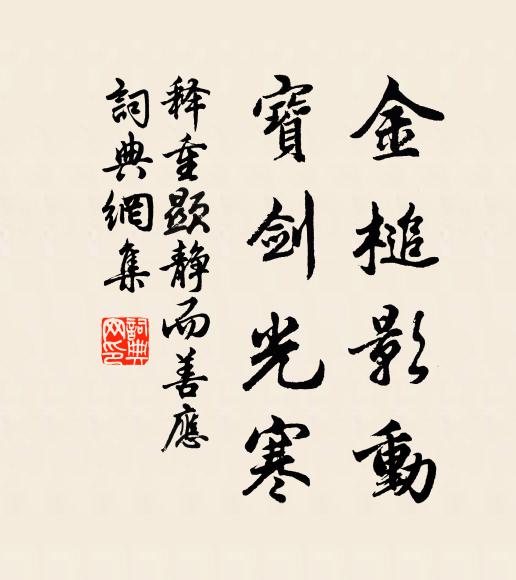 金槌影動
寶劍光寒
释重顯静而善應
詞典網集
詞典网印